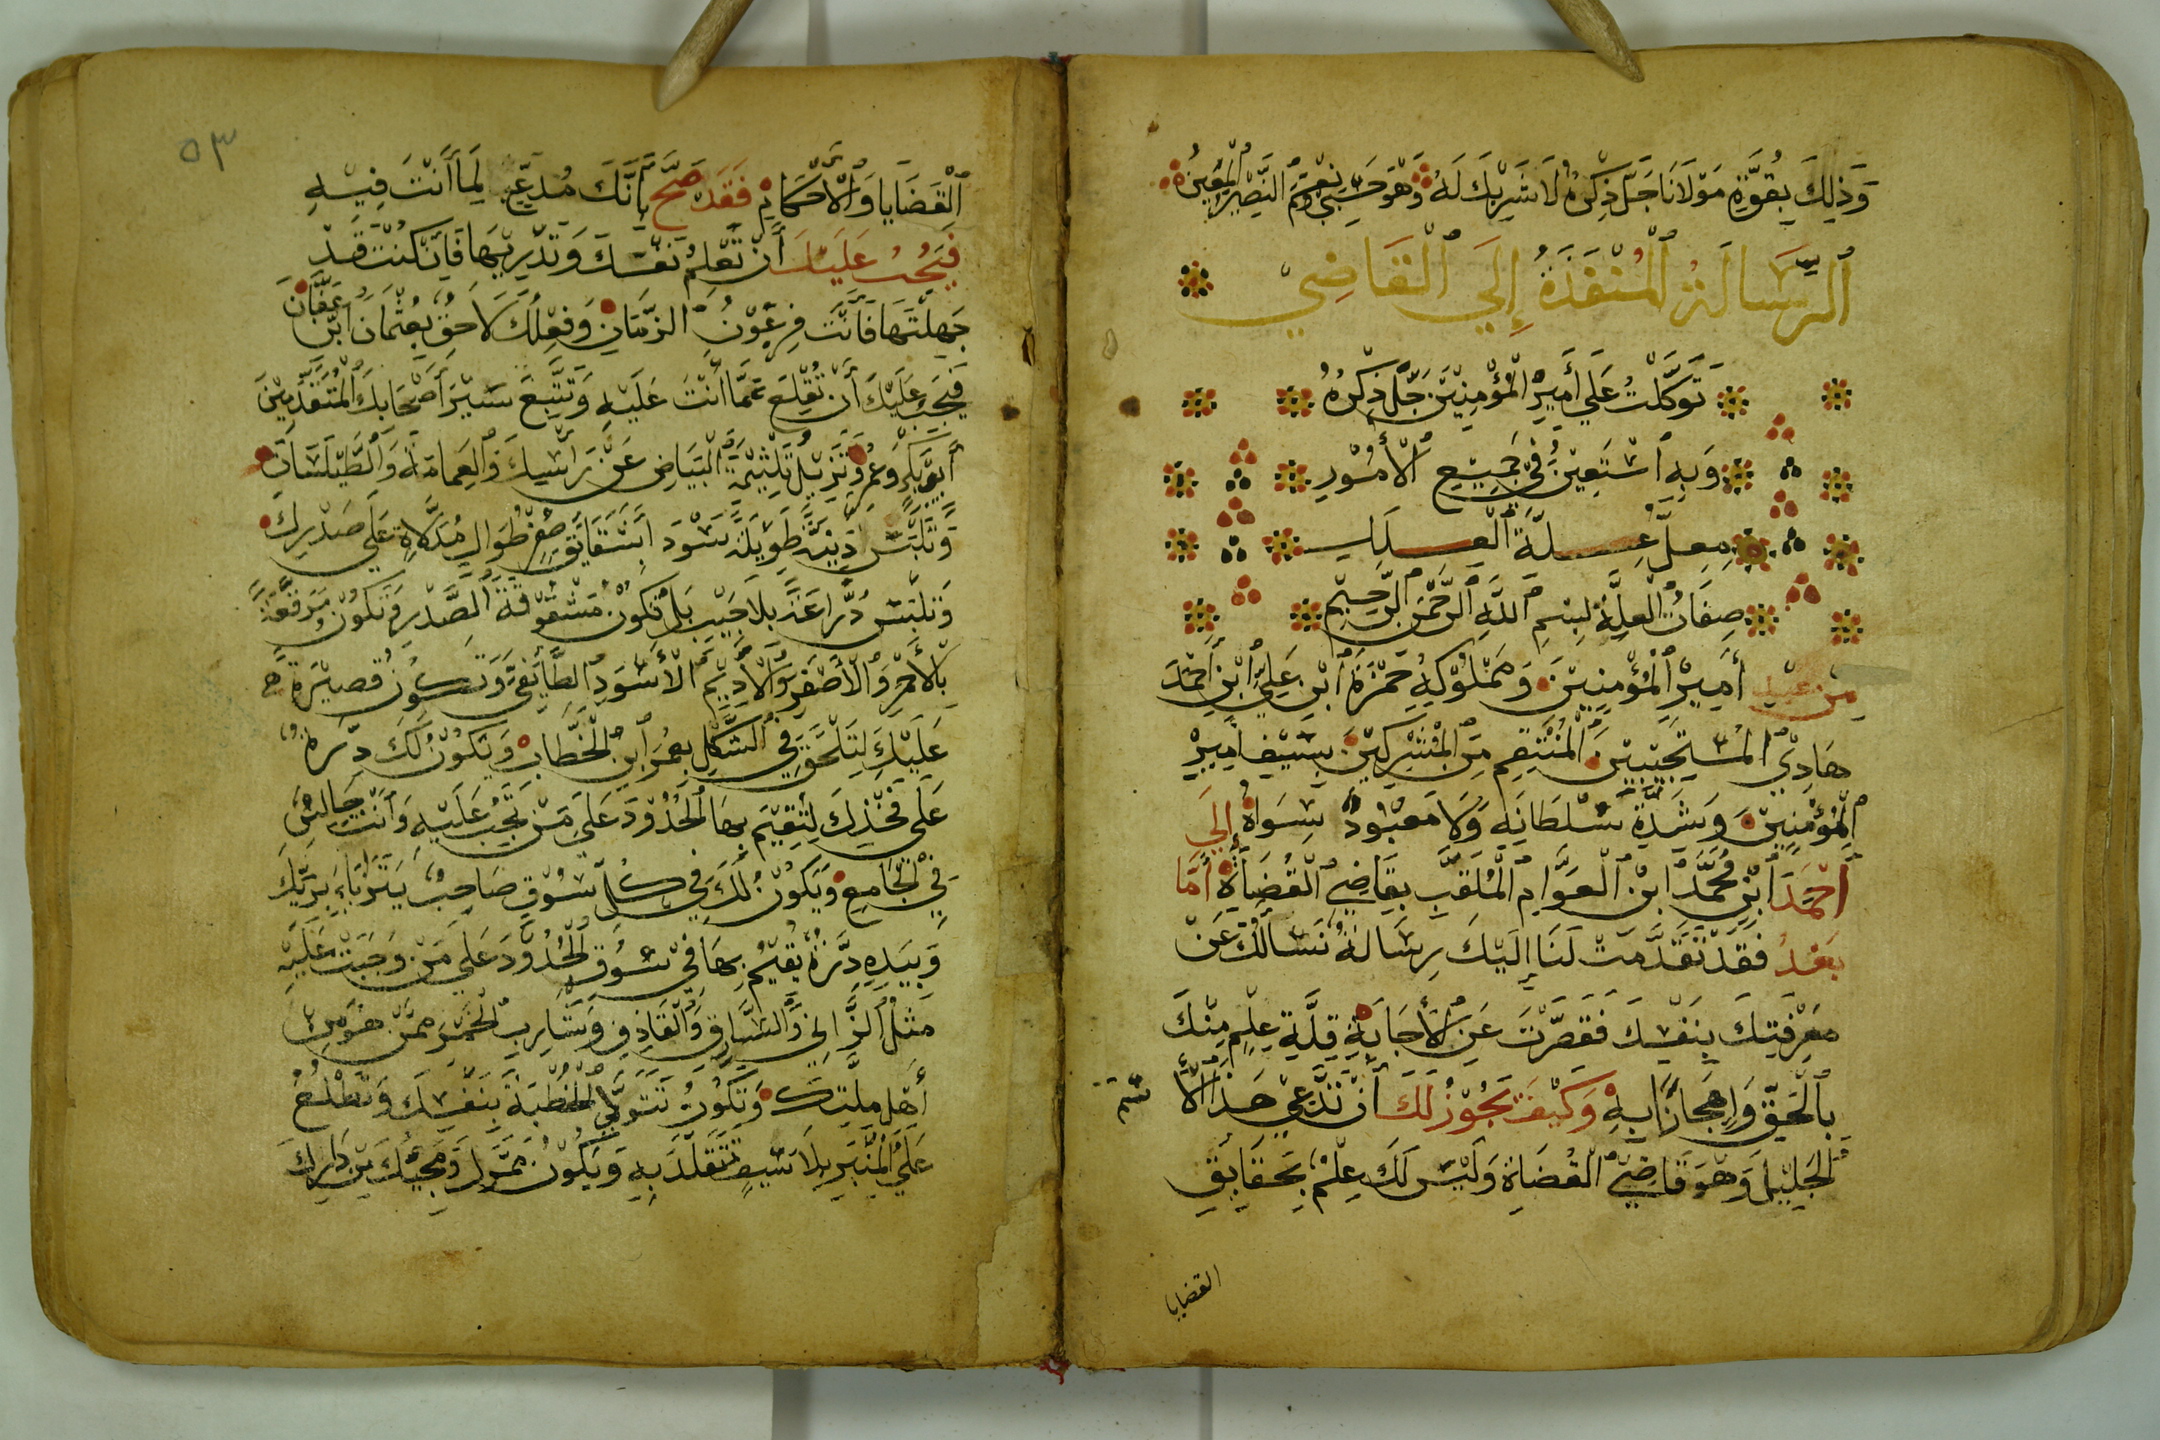 وَذٰلِكَ بِقُوَّةِ مَوْلَانَا جَلَّ ذِكْرُهُ لَا شَرِيْكَ لَهُ وَهُوَ حَسْبِيْ وَنِعْمَ ٱلنَّصِيْرُ ٱلْمُعِيْنُ
ٱلرِّسَالَةُ ٱلْمُنْفَذَةُ إِلَى ٱلْقَاضِيْ
تَوَكَّلْتُ عَلَى أَمِيْرِ ٱلْمُؤْمِنِيْنَ جَلَّ ذِكْرُهُ
وَبِهِ ٱسْتَعِيْنُ فِيْ جَمِيْعِ ٱلْأُمُوْرِ
مُعِلِّ عِلَّةَ ٱلْعِلَلِ
صِفَاتُ ٱلْعِلَّةِ بِسْمِ ٱللَّهِ ٱلرَّحْمٰنِ ٱلرَّحِيْمِ
مِنْ عَبْدِ أَمِيْرِ ٱلْمُؤْمِنِيْنَ وَمَمْلُوْكِهِ حَمْزَةَ ٱبْنِ عَلِيِّ ٱبْنِ أَحْمَدَ
هَادِيْ ٱلْمُسْتَجِيْبِيْنَ ٱلْمُنْتَقِمِ مِنَ ٱلْمُشْرِكِيْنَ بِسَيْفِ أَمِيْرِ
ٱلْمُؤْمِنِيْنَ وَشِدَّةِ سُلْطَانِهِ وَلَا مَعْبُوْدَ سِوَاهُ إِلَى
أَحْمَدَ ٱبْنِ مُحَمَّدِ ٱبْنِ ٱلْعَوَّامِ ٱلْمُلَقَّبِ بِقَاضِيْ ٱلْقُضَاةِ أَمَّا
بَعْدُ فَقَدْ تَقَدَّمَتْ لَنَا إِلَيْكَ رِسَالَةٌ نَسْأَلُكَ عَنْ
مَعْرِفَتِكَ بِنَفْسِكَ فَقَصَّرْتَ عَنِ ٱلْأَجَابَةِ قِلَّةِ عِلْمٍ مِنْكَ
بِٱلْحَقِّ وَإِعْجَازًا بِهِ وَكَيْفَ يَجُوْزُ لَكَ أَنْ تَدَّعِيْ هَذَا ٱلْأَسْمَ
ٱلْجَلِيْلَ وَهُوَ قَاضِيْ ٱلْقُضَاةِ وَلَيْسَ لَكَ عِلْمٌ بِحَقَايِقِ
القضايا
٥٣
ٱلْقَضَايَا وَٱلْأَحْكَامِ فَقَدْ صَحَّ بِأَنَّكَ مُدَّعِيْ لِمَا أَنْتَ فِيْهِ
فَيَجِبُ عَلَيْكَ أَنْ تَعْلَمَ نَفْسَكَ وَتَدْرِيَهَا فَإِنْ كُنْتَ قَدْ
جَهِلْتَهَا فَأَنْتَ فِرْعَوْنُ ٱلزَّمَانِ وَفِعْلُكَ لَاحِقٌ بِعُثْمَانَ ٱبْنِ عَفَّانَ
فَيَجِبُ عَلَيْكَ أَنْ تُقْلِعَ عَمَّا أَنْتَ عَلَيْهِ وَتَتَّبِعَ سِيَرَ أَصْحَابِكَ ٱلْمُتَقَدِّمِيْنَ
أَبِيْ بَكْرٍ وَعُمَرَ وَتُزِيْلَ تَلْثِيْمَةَ ٱلْبَيَاضِ عَنْ رَأْسِكَ وَٱلْعِمَامَةَ وَٱلطَّيْلَسَانَ
وَتَلْبَسَ دَنِيَّةً طَوِيْلَةً سَوْدَا بِشَقَايِقَ صُفْرٍ طِوَالٍ مُدَلَّاةٍ عَلَى صَدْرِكَ
وَتَلْبَسَ دُرَّاعَةً بِلَا جَيْبٍ بَلْ تَكُوْنُ مَشْقُوْقَةَ ٱلصَّدْرِ وَتَكُوْنَ مُرَقَّعَةً
بِٱلْأَحْمَرِ وَٱلْأَصْفَرِ وَٱلْأَدِيْمِ ٱلْأَسْوَدِ ٱلطَّائِفِيِّ وَتَكُوْنُ قَصِيْرَةً
عَلَيْكَ لِتَلْحَقَ فِيْ ٱلشَّكْلِ بِعُمَرَ ٱبْنِ ٱلْخَطَّابِ وَيَكُوْنُ لَكَ دِرَّةٌ
عَلَى فَخْذِكَ لِتُقِيْمَ بِهَا ٱلْحُدُوْدَ عَلَى مَنْ تَجِبُ عَلَيْهِ وَأَنْتَ جَالِسٌ
فِيْ ٱلْجَامِعِ وَيَكُوْنُ لَكَ فِيْ كُلِّ سُوْقٍ صَاحِبٌ يَتَزَيَّاءُ بِزِيِّكَ
وَبِيَدِهِ دِرَّةٌ يُقِيْمُ بِهَا فِيْ سُوْقِ ٱلْحُدُوْدَ عَلَى مَنْ وَجَبَتْ عَلَيْهِ
مِثْلَ ٱلزَّانِيْ وَٱلسَّارِقِ وَٱلْقَاذِفِ وَشَارِبِ ٱلْخَمْرِ مِمَّنْ هُوَ مِنْ
أَهْلِ مِلَّتِكَ وَتَكُوْنُ تَتَوَلَّى ٱلْخُطْبَةَ بِنَفْسِكَ وَتَطْلُعُ
عَلَى ٱلْمِنْبَرِ بِلَا سَيْفٍ تَتَقَلَّدُ بِهِ وَيَكُوْنُ مَمَرُّكَ وَمَجِيُّكَ مِنْ دَارِكَ